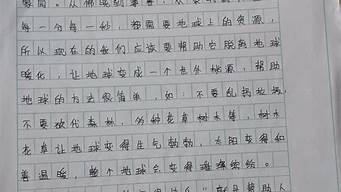 每一分每一秒，都需要地球上的资源，
所以现在的我们应该要帮助它脱离地球
暖化，让地球变成一个世外桃源，帮助
地球的方法很简单，如：不要乱扔垃圾，
不要砍伐森林，多种花草树木等，树木
花草让地球变得生气勃勃，太阳变得和
善温暖，整个地球会变得璀璨缤纷。